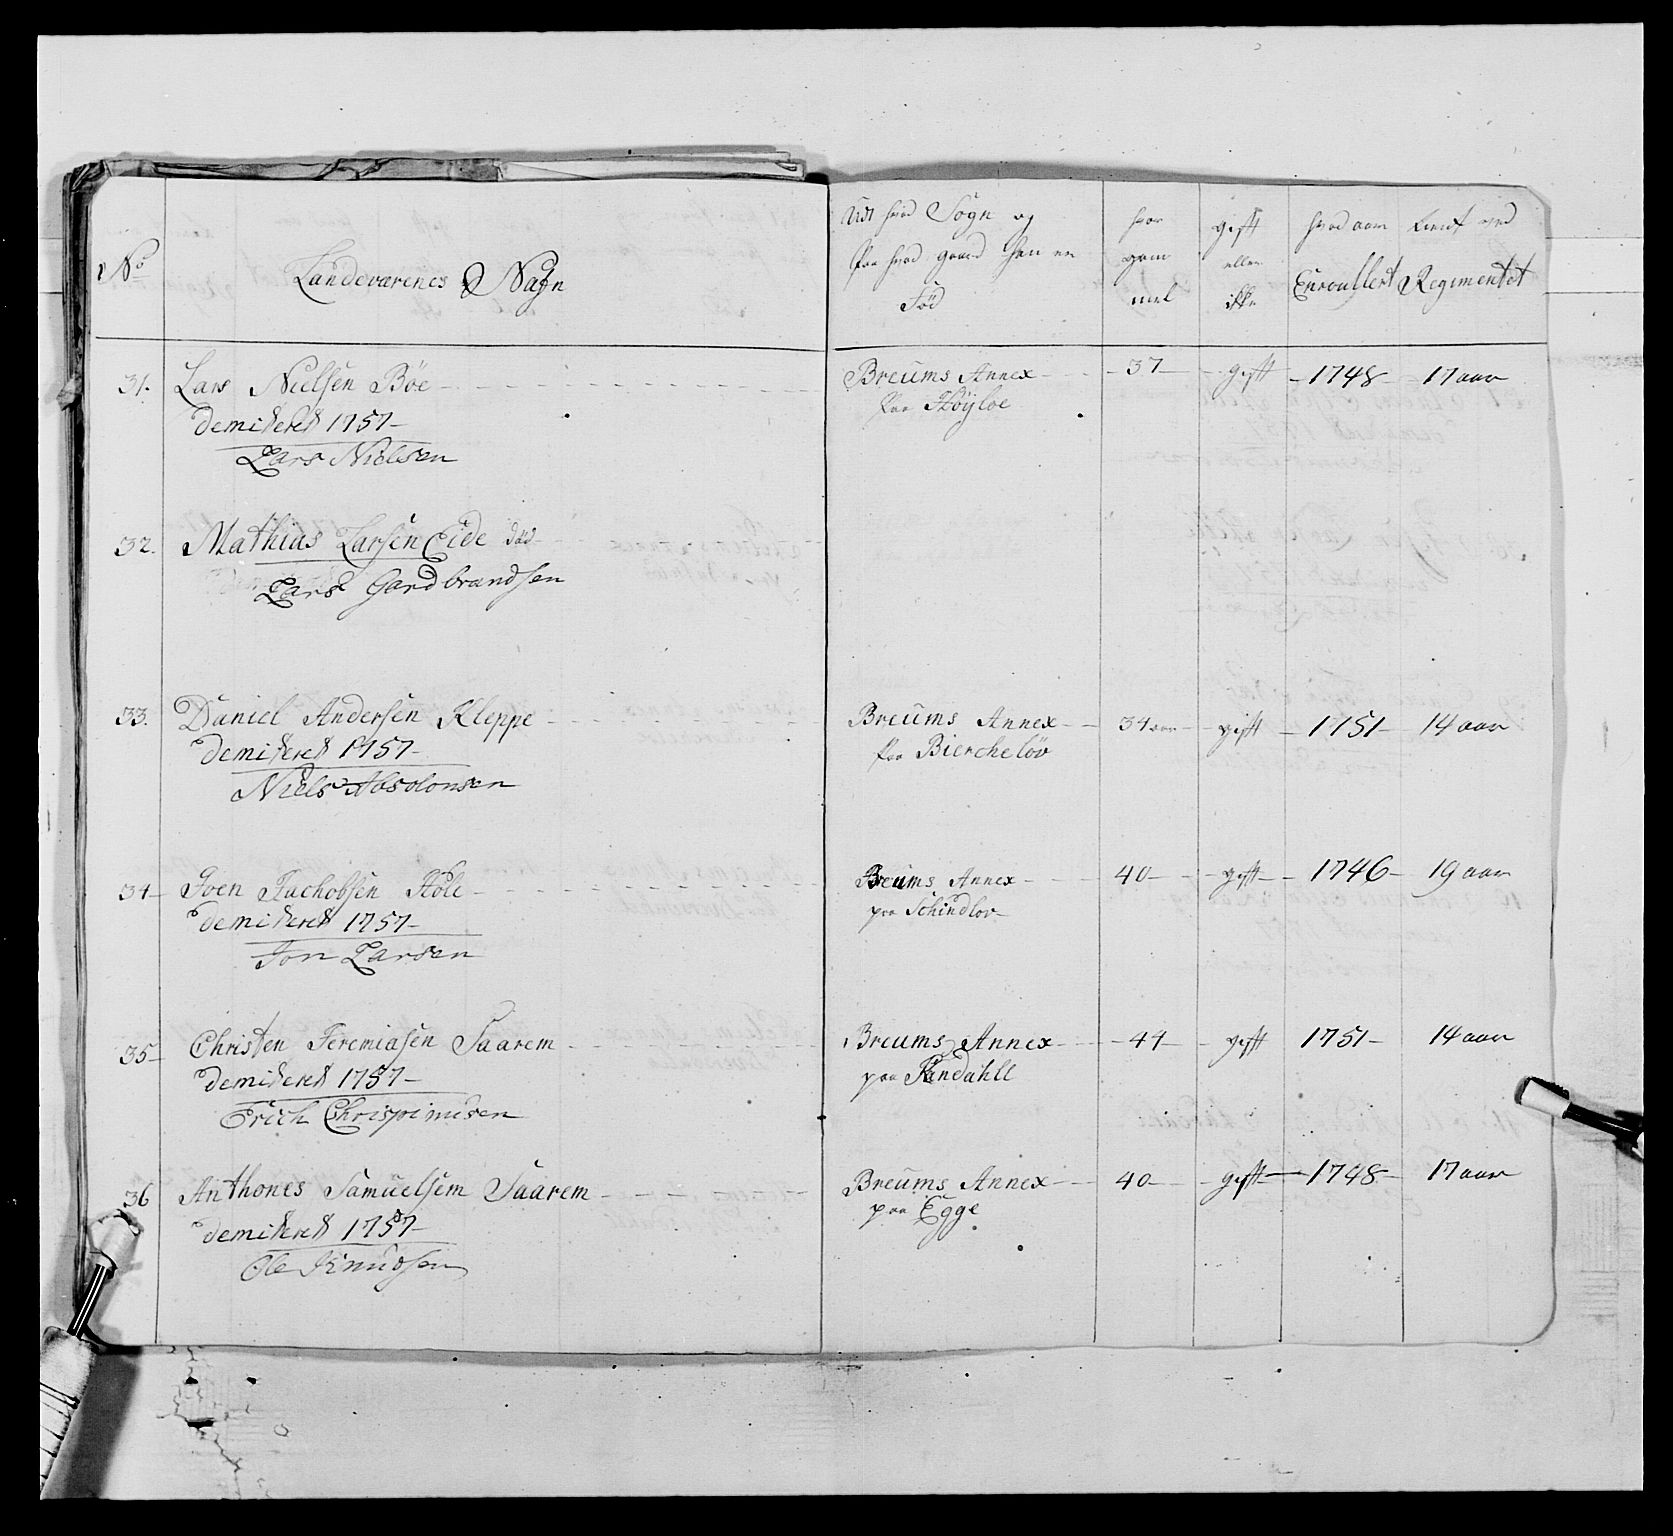 No
Landeværenes Nafn
Udi hvad Sogn og
Paa hvad gaard han er
Fød
hvor
gam
mel
gift
eller
ikke
hvad aar
Enroullert
tient ved
Regimentet
31. Lars Nielsen Böe - 
Breums Annex - 37 - gift - 1748 - 17 aar
demitered 1757 -
Paa Höyloe
Lars Nielsen
32. Mathias Larsen Eide död -
Lars Gardbrandsen
33. Daniel Andersen Kleppe -
Breums Annex - 34 aar - gift - 1751 - 14 aar
demitered 1757 -
Paa Biercheløv
Niels Absolonsen
34 - Joen Jachobsen Höle -
Breums Annex - 40 - gift - 1746 - 19 aar
demitered 1757 -
paa Schindlov -
Jon Larsen
35 - Christen Jeremiasen Saarem -
Breums Annex - 44 - gift 1751 - 14 aar
demitered 1757 -
paa Randahll
Erich Chrispinusen
36 Anthones Samuelsen Saarem -
Breums Annex - 40 - gift - 1748 - 17 aar
demitered 1757 -
paa Egge
Ole Knudsen